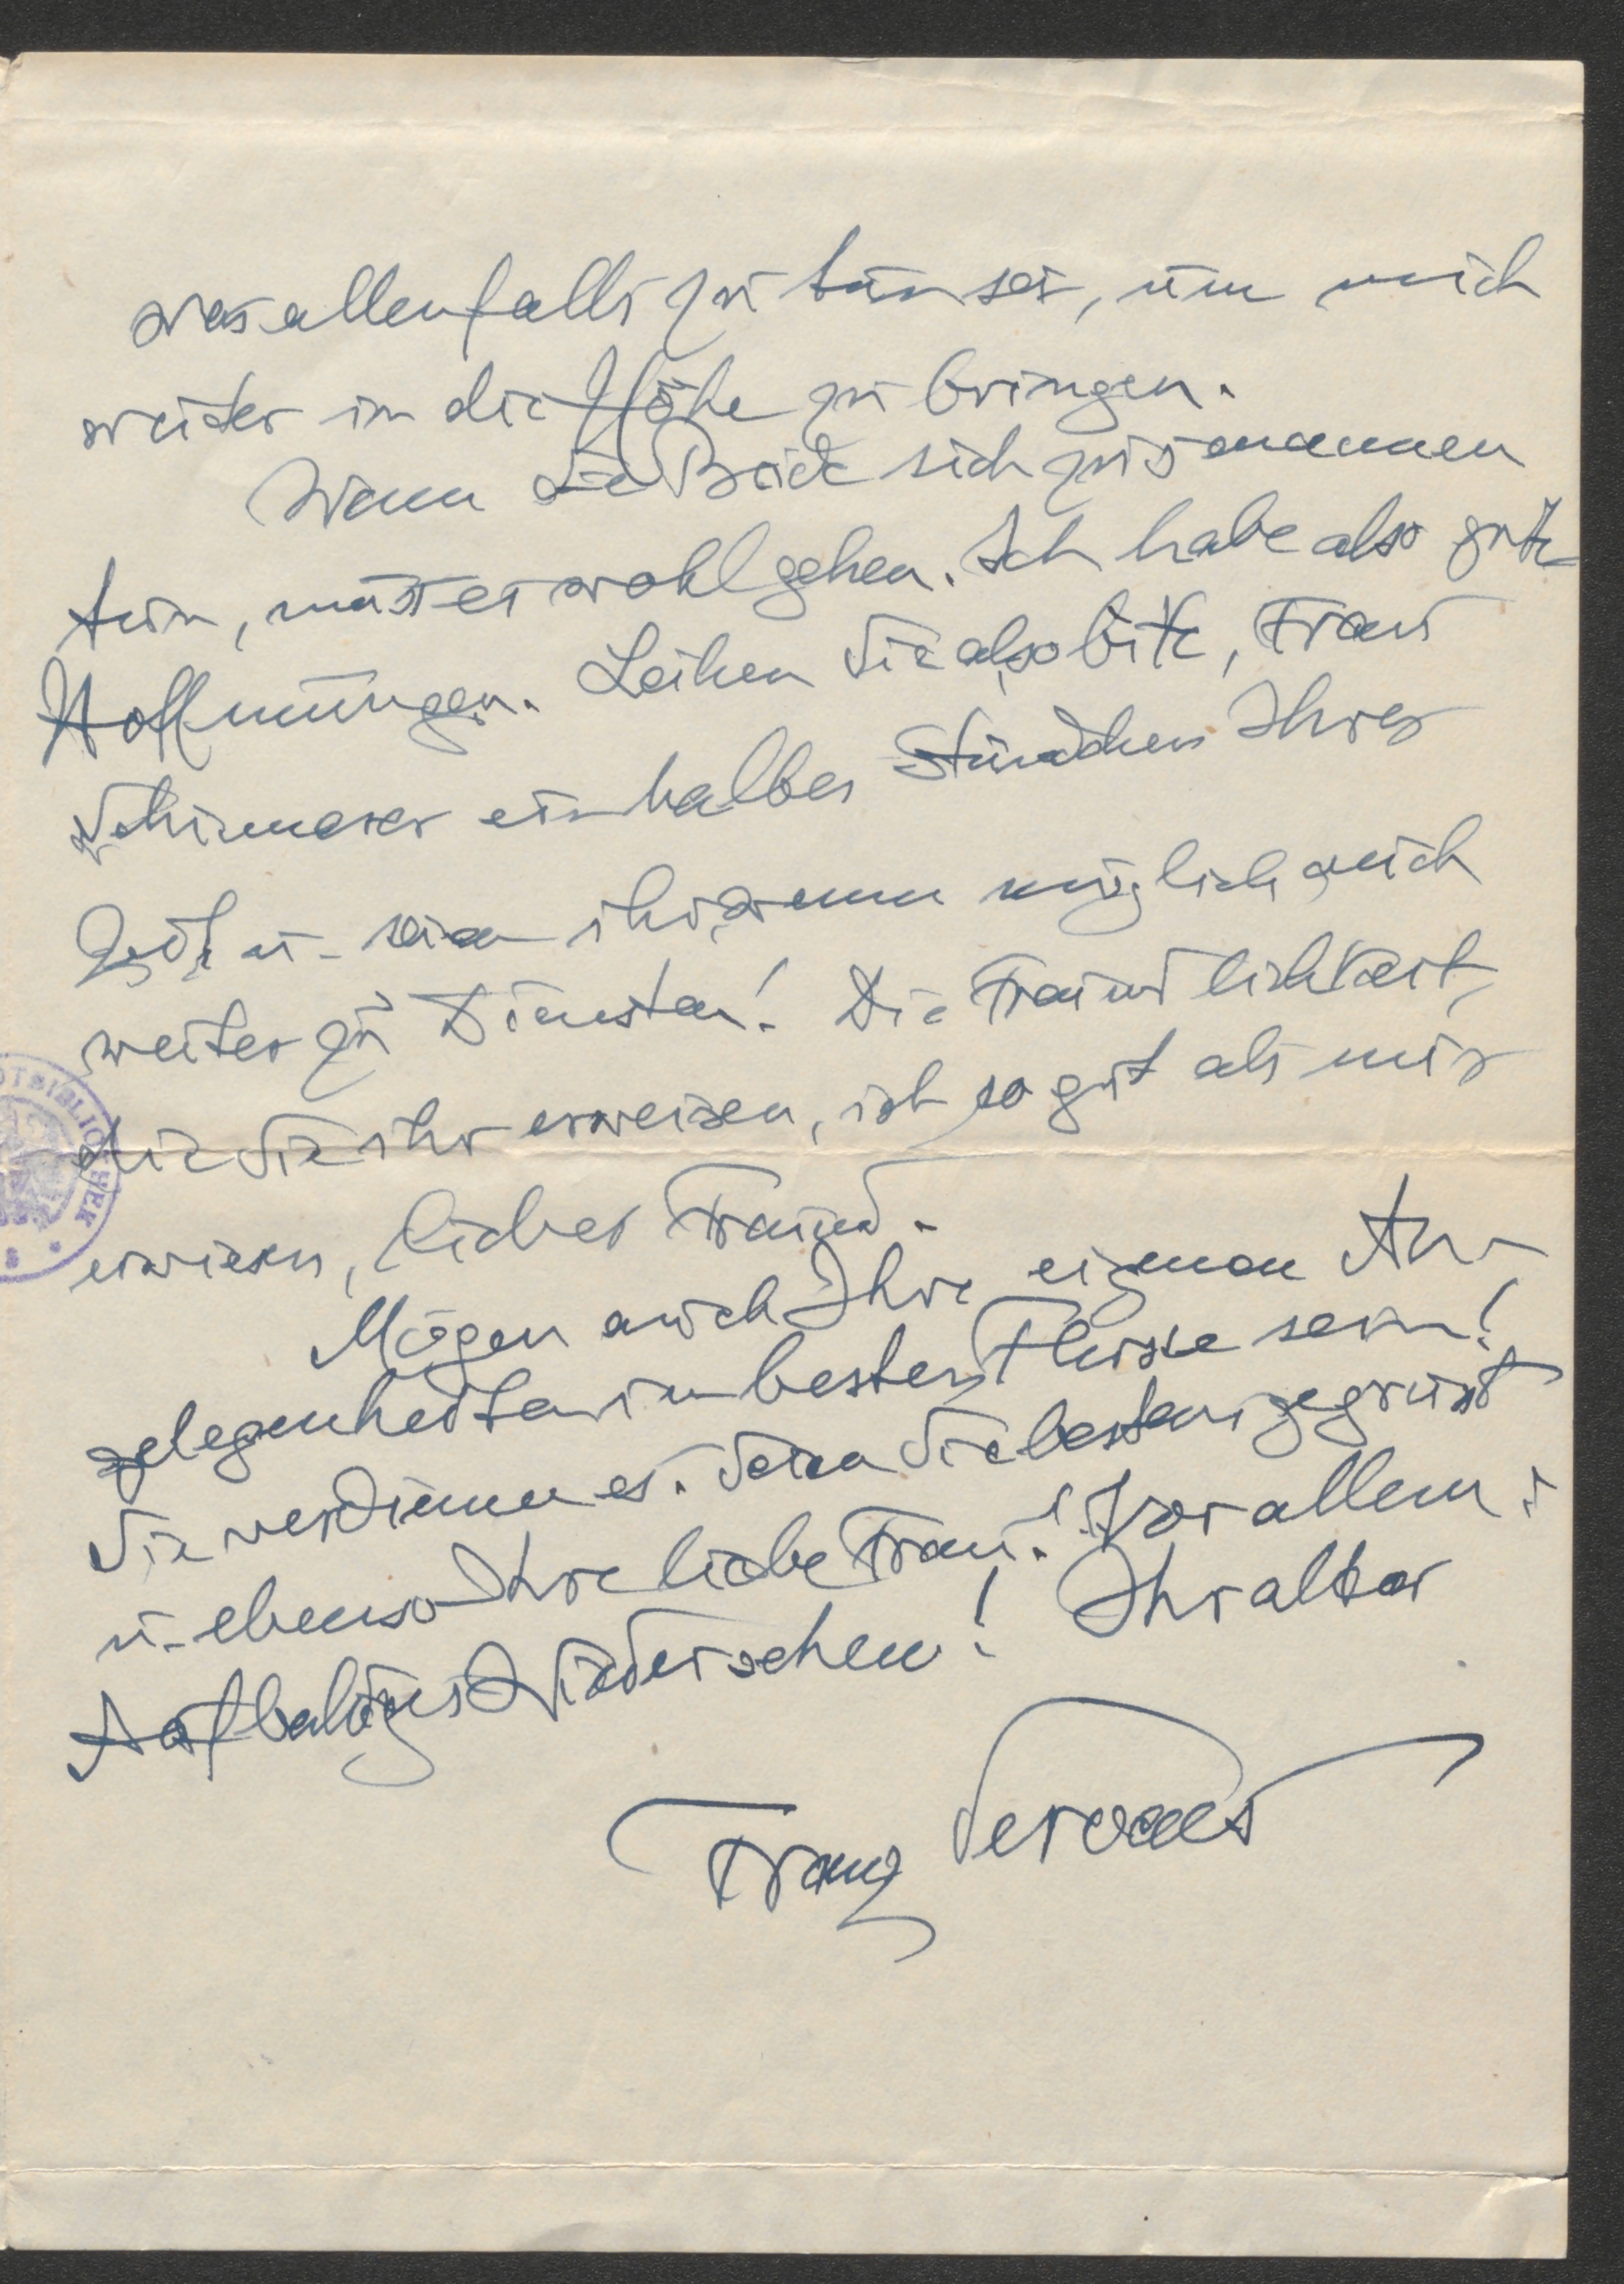 was allenfalls zu tun sei, um mich
weiter in die Höhe zu bringen.
Wenn Sie Beide sich zusammen
tun, muss es wohl gehen. Ich habe also gute
Hoffnungen. Leihen Sie also bitte, Frau
ein halbes Stündchen Ihrer
Zeit u. seien ihr, wenn möglich, auch
weiter zu Diensten! Die Freundlichkeit,
die Sie ihr erweisen, ist so gut als mir
erwiesen, lieber Freund.
Mögen auch Ihre eigenen An-
gelegenheiten im besten Flusse sein!
Sie verdienen es. Seien Sie bestens gegrüsst
u. ebenso Ihre liebe Frau! Vor allem:
Auf baldiges Wiedersehen! Ihr alter
Franz Servaes